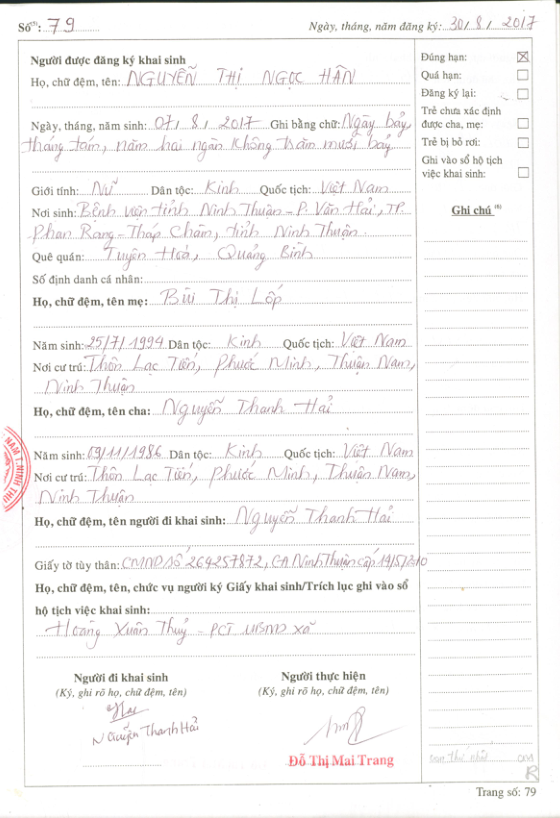 Số⁽⁵⁾: 79
Ngày, tháng, năm đăng ký: 30/8/2017
Người được đăng ký khai sinh
Họ, chữ đệm, tên: NGUYỄN THỊ NGỌC HÂN
Ngày, tháng, năm sinh: 07/8/2017 Ghi bằng chữ: Ngày bảy,
tháng tám, năm hai ngàn không trăm mười bảy
Giới tính: Nữ Dân tộc: Kinh Quốc tịch: Việt Nam
Nơi sinh: Bệnh viện tỉnh Ninh Thuận - P. Văn Hải, TP.
Phan Rang - Tháp Chàm, tỉnh Ninh Thuận
Quê quán: Tuyên Hoá, Quảng Bình
Số định danh cá nhân:
Họ, chữ đệm, tên mẹ: Bùi Thị Lốp
Năm sinh: 25/7/1994 Dân tộc: Kinh Quốc tịch: Việt Nam
Nơi cư trú: Thôn Lạc Tiến, Phước Minh, Thuận Nam,
Ninh Thuận
Họ, chữ đệm, tên cha: Nguyễn Thanh Hải
Năm sinh: 09/11/1986 Dân tộc: Kinh Quốc tịch: Việt Nam
Nơi cư trú: Thôn Lạc Tiến, Phước Minh, Thuận Nam,
Ninh Thuận
Họ, chữ đệm, tên người đi khai sinh: Nguyễn Thanh Hải
Giấy tờ tùy thân: CMND Số 264257872, CA Ninh Thuận cấp 19/5/2010
Họ, chữ đệm, tên, chức vụ người ký Giấy khai sinh/Trích lục ghi vào sổ
hộ tịch việc khai sinh:
Hoàng Xuân Thuỷ - PCT UBND xã
Người đi khai sinh
(Ký, ghi rõ họ, chữ đệm, tên)
Hai
Nguyễn Thanh Hải
Người thực hiện
(Ký, ghi rõ họ, chữ đệm, tên)
Đỗ Thị Mai Trang
Đúng hạn:
Quá hạn:
Đăng ký lại:
Trẻ chưa xác định
được cha, mẹ:
Trẻ bị bỏ rơi:
Ghi vào sổ hộ tịch
việc khai sinh:
Ghi chú ⁽⁶⁾
con thứ nhất
Trang số: 79
NAM T. NINH THU